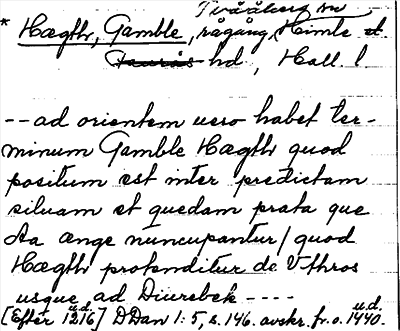 Tvååkers sn
* Hægthr, Gamble, rågång, Himle et.
Faurås hd, Hall. l
-- ad orientem uero habet ter-
minum Gamble Hægthr quod
positum est inter predictam
siluam et quedam prata que
Aa ænge nuncupantur / quod
Hægthr protenditur de Vthros
usque ad Diurebek ----
[Efter 1216] u.d. DDan 1:5, s. 146. avskr. fr. o. 1440. u.d.